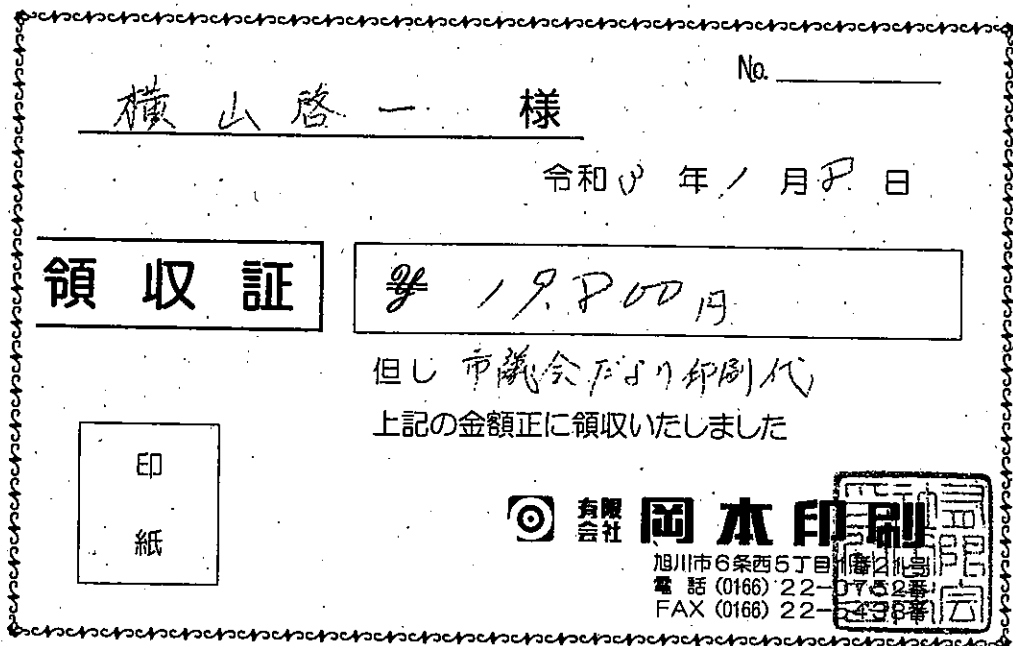 No.
横山啓一 様
令和3年1月8日
領収証
¥19,800円
但し 市議会だより印刷代
上記の金額正に領収いたしました
印
紙
有限会社 岡本印刷
旭川市6条西5丁目
電話(0166)22-0752番
FAX(0166)22-5438番